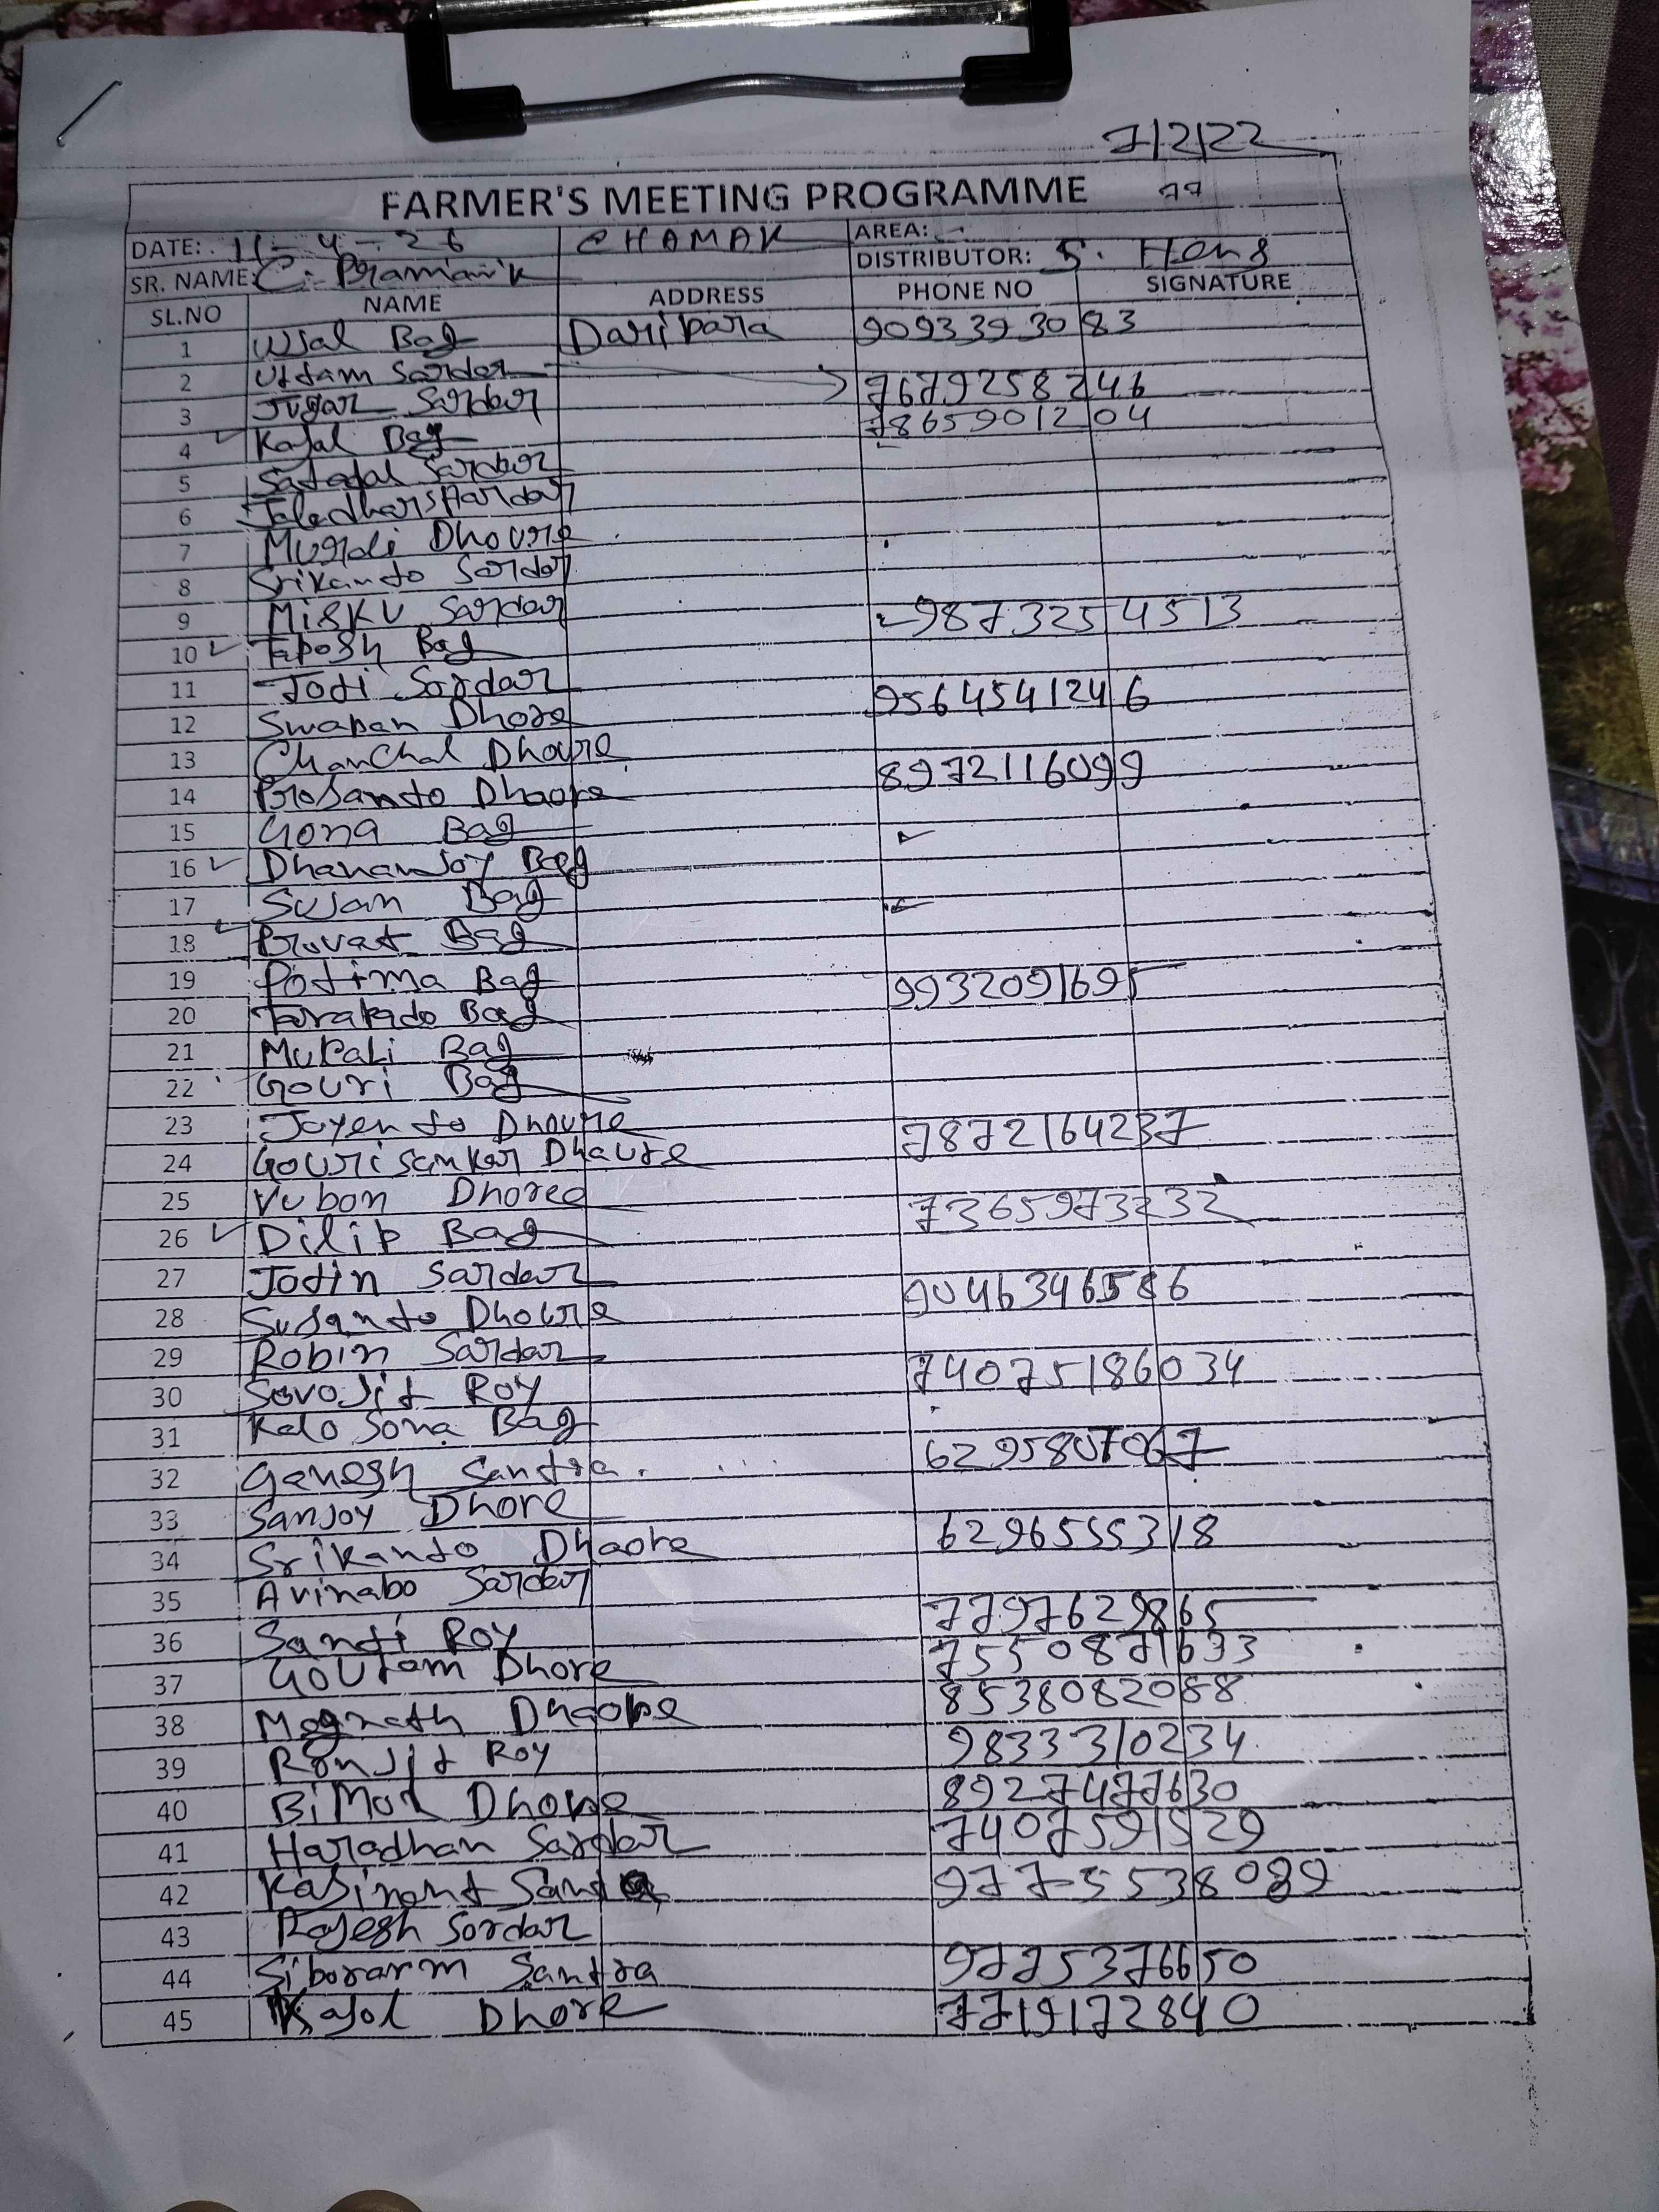 7/2/22
FARMER'S MEETING PROGRAMME 77
DATE: 11-4-26 CHAMAK AREA:
SR. NAME: C. Pramanik DISTRIBUTOR: S.
SL.NO NAME ADDRESS PHONE NO SIGNATURE
1 Ujal Bag Daripara 9093393083
2 Uttam Sardar 7679258246
3 Jugar Sardar 7865901204
4 Kajal Bag
5 Sardar
6
7 Murali Dhoure
8 Srikanto Sardar
9 Misku Sardar 9873254513
10 Taposh Bag
11 Joti Sardar 9564541246
12 Swapan Dhore
13 Chanchal Dhoure 8972116099
14 Prosanto Dhaore
15 Gona Bag
16 Dhananjoy Bag
17 Sujan Bag
18 Provat Bag
19 Potima Bag 9932091695
20 Tarakado Bag
21 Murali Bag
22 Gouri Bag
23 Joyento Dhoure 7872164237
24 Gourisankar Dhaure
25 Vubon Dhoree 7365973232
26 Dilip Bag
27 Jotin Sardar
28 Susanto Dhoure
29 Robin Sardar 74075186034
30 Sovojit Roy
31 Kalo Sona Bag
32 Ganesh Santra
33 Sanjoy Dhore
34 Srikanto Dhaore 6296555318
35 Avinabo Sardar 7797629865
36 Santi Roy
37 Goutam Dhore
38 Dhaore
39 Ronjit Roy 9833310234
40 Bimol Dhore 8927477630
41 Haradhan Sardar 7407591529
42 9775538089
43 Rajesh Sordar
44 Siborarm Santra 9775376650
45 Kajol Dhore 7719172840